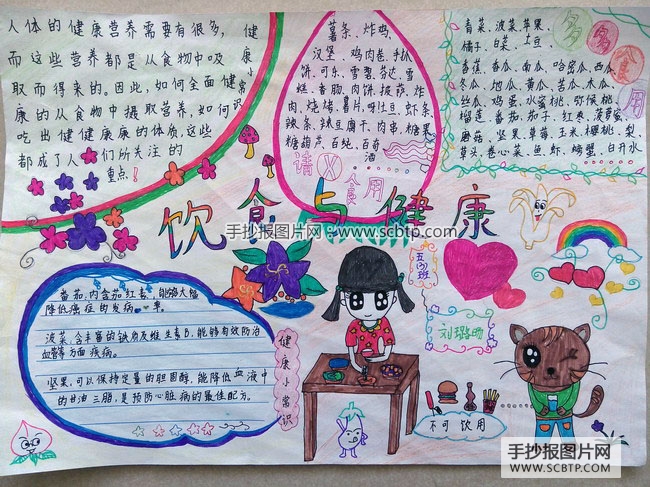 人体的健康营养需要有很多,
而这些营养都是从食物中吸
取而得来的。因此,如何全面健
康的从食物中摄取营养,如何
吃出健健康康的体质,这些
都成了人们所关注的
重点!
健康小常识
薯条、炸鸡、
汉堡、鸡肉卷、手抓
饼、可乐、雪碧、芬达、雪
糕、香肠、肉饼、披萨、炸
肉、烧烤、薯片、呀!土豆、虾条、
辣条、辣豆腐干、肉串、糖果
糖葫芦、百纯、百奇
酒
请 食用
青菜、菠菜、苹果、
橘子、白菜、土豆、
香蕉、香瓜、南瓜、哈密瓜、西瓜、
冬瓜、地瓜、黄瓜、苦瓜、木瓜、
丝瓜、鸡蛋、水蜜桃、猕猴桃、
榴莲、番茄、茄子、红枣、菠萝蜜、
蘑菇、坚果、草莓、玉米、樱桃、梨、
草头、卷心菜、鱼、虾、螃蟹、白开水
多多食用
饮食与健康
手抄报图片网·www.scbtp.com
五(3)班
番茄,内含茄红素,能够大幅
降低癌症的发病率。
菠菜,含丰富的铁质及维生素B,能够有效防治
血管等方面疾病。
坚果,可以保持定量的胆固醇,能降低血液中
的甘油三脂,是预防心脏病的最佳配方。
健康小常识
不可饮用
手抄报图片网
WWW.SCBTP.COM